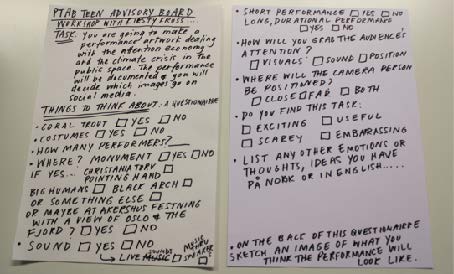 PTAB TEEN ADVISORY BOARD
WORKSHOP WITH KIRSTY CROSS...
TASK. You are going to make a
performance artwork dealing
with the attention economy
and the climate crisis in the
public space. The performance
will be documented & you will
decide which images go on
social media.
THINGS TO THINK ABOUT: A QUESTIONAIRE
• CORAL TROUT ☐ YES ☐ NO
• COSTUMES ☐ YES ☐ NO
• HOW MANY PERFORMERS?
• WHERE? MONUMENT ☐ YES ☐ NO
IF YES... POINTING HAND ☐
BIG HUMANS ☐ BLACK ARCH ☐
OR SOMETHING ELSE ☐
OR MAYBE AT AKERSHUS FESTNING
WITH A VIEW OF OSLO & THE
FJORD? ☐ YES ☐ NO
• SOUND ☐ YES ☐ NO
LIVE
• SHORT PERFORMANCE ☐ YES ☐ NO
LONG, DURATIONAL PERFORMANCE
☐ YES ☐ NO
• HOW WILL YOU GRAB THE AUDIENCE'S
ATTENTION?
☐ VISUALS ☐ SOUND ☐ POSITION
• WHERE WILL THE CAMERA PERSON
BE POSITIONED?
☐ CLOSE ☐ FAR ☐ BOTH
• DO YOU FIND THIS TASK:
☐ EXCITING ☐ USEFUL
☐ SCAREY ☐ EMBARRASSING
• LIST ANY OTHER EMOTIONS OR
THOUGHTS, IDEAS YOU HAVE
PÅ NORK OR IN ENGLISH.....
• ON THE BACK OF THIS QUESTIONAIRE
SKETCH AN IMAGE OF WHAT YOU
THINK THE PERFORMANCE WILL
LOOK LIKE.